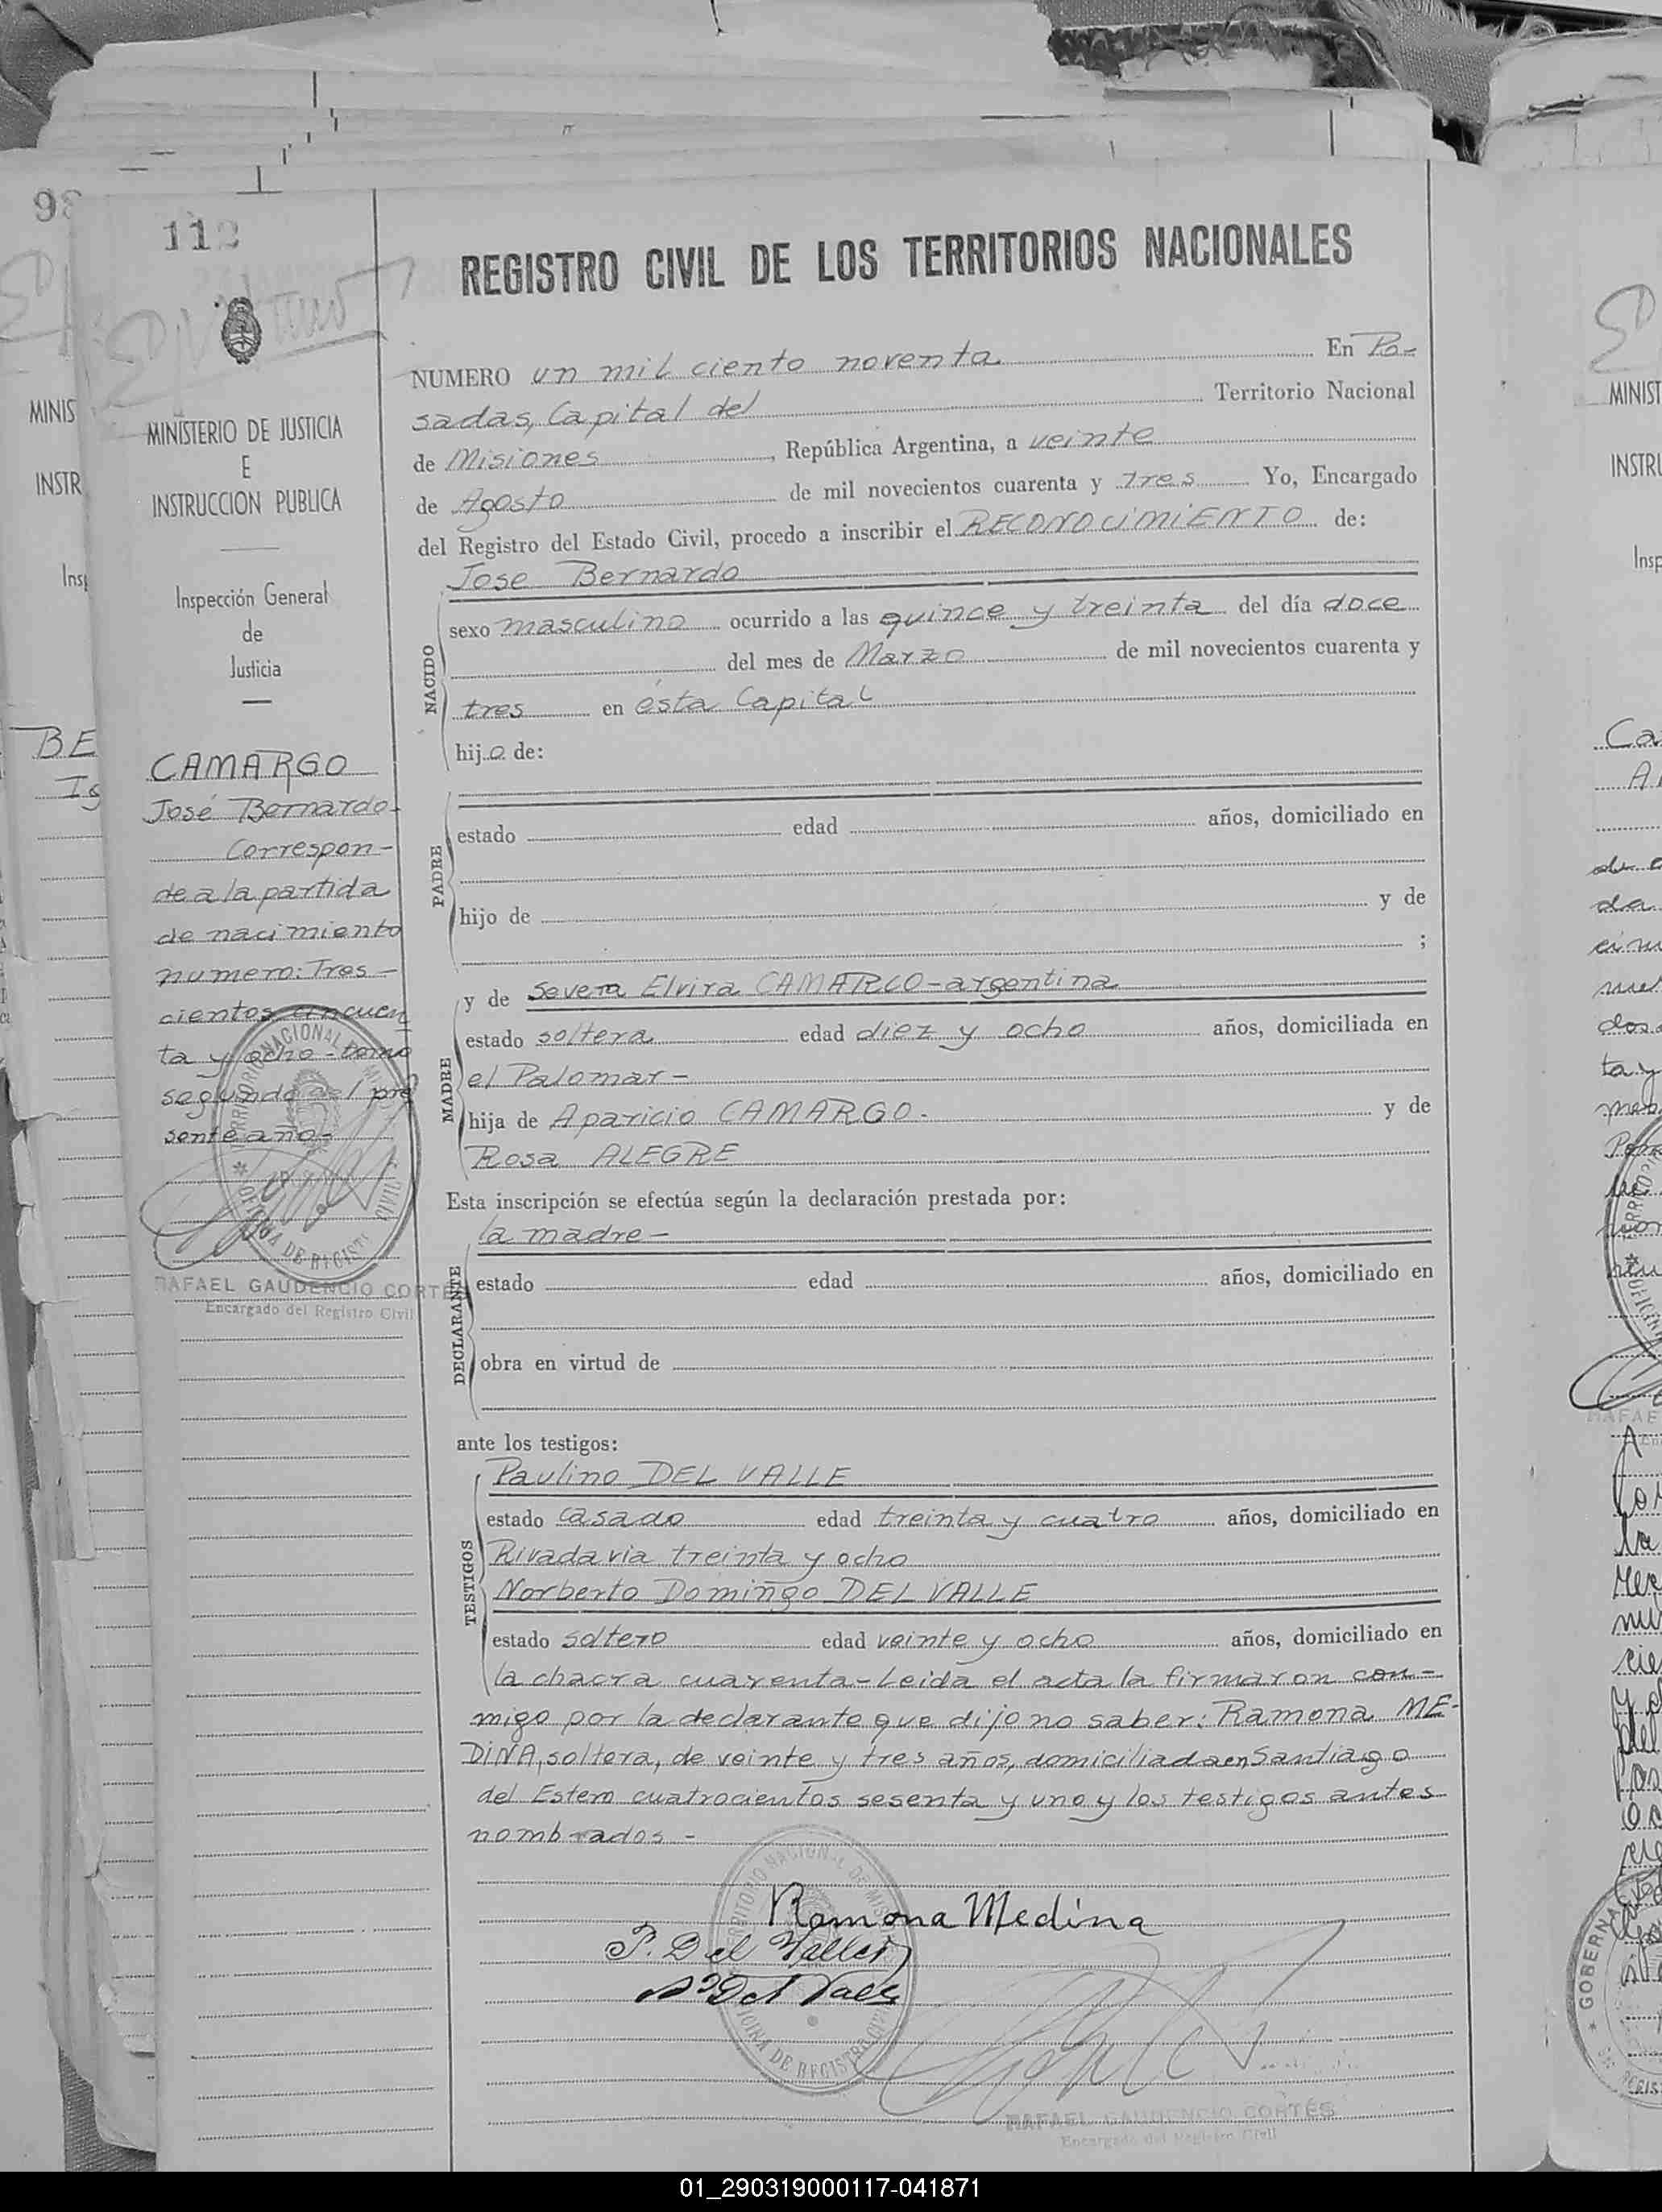 98
112
REGISTRO CIVIL DE LOS TERRITORIOS NACIONALES
NUMERO un mil ciento noventa En Po-
sadas, Capital del Territorio Nacional
de Misiones, República Argentina, a veinte
de Agosto de mil novecientos cuarenta y tres Yo, Encargado
del Registro del Estado Civil, procedo a inscribir el RECONOCIMIENTO de:
NACIDO
Jose Bernardo
sexo masculino ocurrido a las quince y treinta del día doce
del mes de Marzo de mil novecientos cuarenta y
tres en ésta Capital
hijo de:
PADRE
estado edad años, domiciliado en
hijo de y de
;
MADRE
y de Severa Elvira CAMARGO-argentina
estado soltera edad diez y ocho años, domiciliada en
el Palomar-
hija de Aparicio CAMARGO- y de
Rosa ALEGRE
Esta inscripción se efectúa según la declaración prestada por:
DECLARANTE
la madre-
estado edad años, domiciliado en
obra en virtud de
ante los testigos:
TESTIGOS
Paulino DEL VALLE
estado casado edad treinta y cuatro años, domiciliado en
Rivadavia treinta y ocho
Norberto Domingo DEL VALLE
estado soltero edad veinte y ocho años, domiciliado en
la chacra cuarenta-Leida el acta la firmaron con-
migo por la declarante que dijo no saber: Ramona ME-
DINA, soltera, de veinte y tres años, domiciliada en Santiago
del Estero cuatrocientos sesenta y uno y los testigos antes
nombrados-
Ramona Medina
P. Del Valle
Del Valle
RAFAEL GAUDENCIO CORTÉS
Encargado del Registro Civil
MINISTERIO DE JUSTICIA
E
INSTRUCCION PUBLICA
Inspección General
de
Justicia
CAMARGO
José Bernardo-
Correspon-
de a la partida
de nacimiento
numero: Tres-
cientos cincuen
ta y ocho-tomo
segundo del pre
sente año-
RAFAEL GAUDENCIO CORTÉS
Encargado del Registro Civil
MINIS
INSTR
Insp
BE
Ig
MINIST
INSTRU
Insp
Ca
01_290319000117-041871